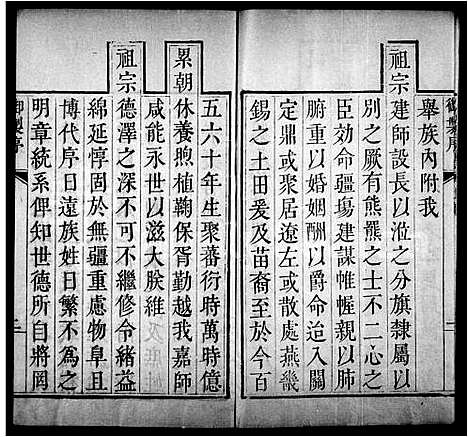 舉族內附我
祖宗建師設長以涖之分旗隸屬以
別之厥有熊羆之士不二心之
臣効命疆場建謀帷幄親以肺
腑重以婚姻酬以爵命追入關
定鼎或聚居遼左或散處燕畿
錫之土田爰及苗裔至於今百
御製序
二
五六十年生聚蕃衍時萬時億
累朝休養煦植鞠保胥勤越我嘉師
咸能永世以滋大朕維
祖宗德澤之深不可不繼修令緒益
綿延惇固於無疆重慮物阜且
博代序日遠族姓日繁不為之
明章統系俾知世德所自將罔
御製序
三